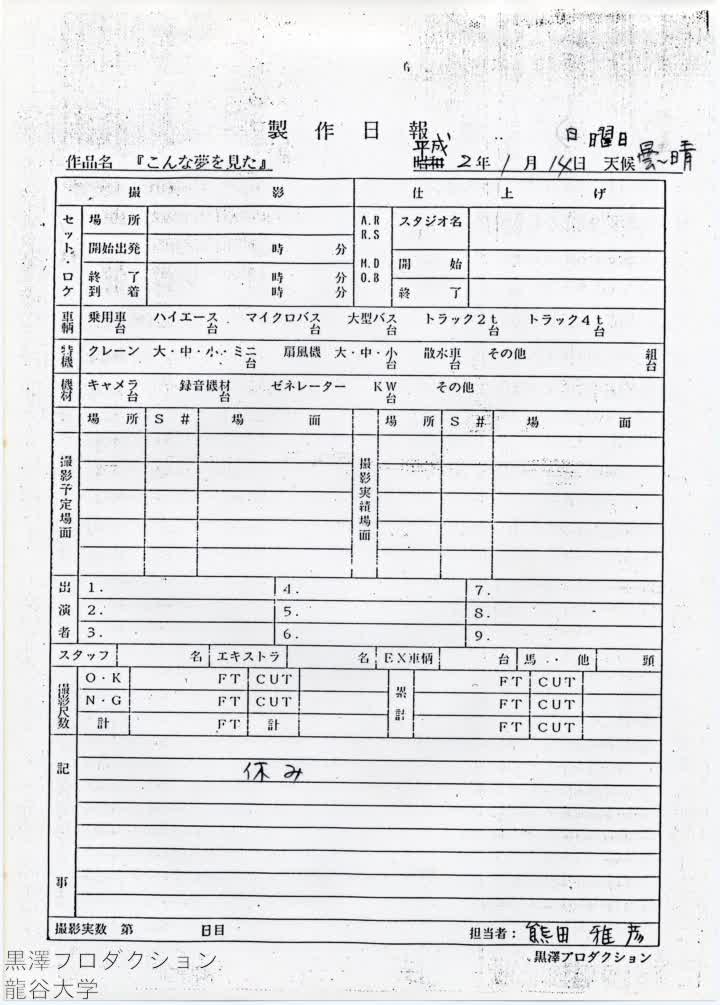 6
製作日報
日曜日
作品名 『こんな夢を見た』 平成 昭和 2年 1月 14日 天候 曇〜晴
撮 影 仕 上 げ
セット・ロケ 場 所 A.R R.S スタジオ名
開始出発 時 分 M.D O.B 開 始
終 了 時 分
到 着 時 分 終 了
車輌 乗用車 台 ハイエース 台 マイクロバス 台 大型バス 台 トラック2t 台 トラック4t 台
特機 クレーン 大・中・小・ミニ 台 扇風機 大・中・小 台 散水車 台 その他 組 台
機材 キャメラ 台 録音機材 台 ゼネレーター KW 台 その他
場 所 S # 場 面 場 所 S # 場 面
撮影予定場面 撮影実績場面
出演者
1. 4. 7.
2. 5. 8.
3. 6. 9.
スタッフ 名 エキストラ 名 EX車輌 台 馬・他 頭
撮影尺数 累計
O・K FT CUT FT CUT
N・G FT CUT FT CUT
計 FT 計 FT CUT
記事
休み
撮影実数 第 日目 担当者: 熊田 雅彦
黒澤プロダクション
黒澤プロダクション
龍谷大学